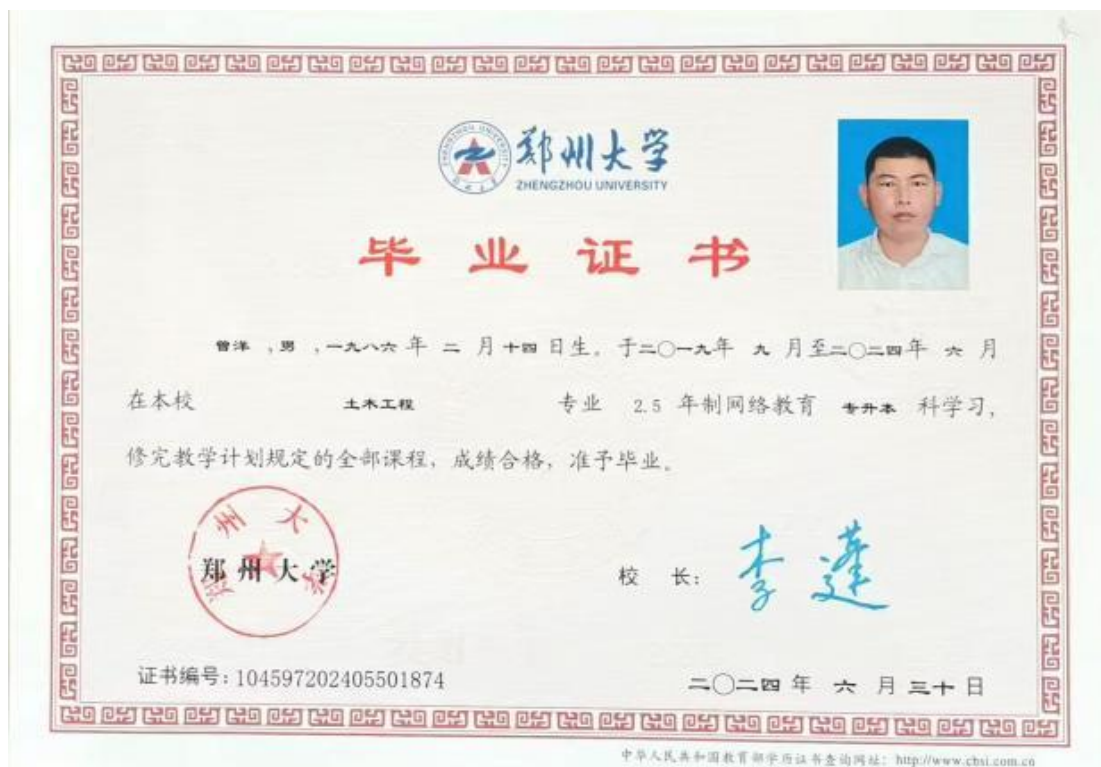 郑州大学
ZHENGZHOU UNIVERSITY
毕业证书
曾洋 ,男 ,一九八六 年 二 月 十四 日生, 于二〇一九年 九 月至二〇二四年 六 月
在本校 土木工程 专业 2.5 年制网络教育 专升本 科学习,
修完教学计划规定的全部课程, 成绩合格, 准予毕业。
郑州大学
郑州大学
校 长:
证书编号: 104597202405501874
二〇二四 年 六 月 三十 日
中华人民共和国教育部学历证书查询网址: http://www.chsi.com.cn